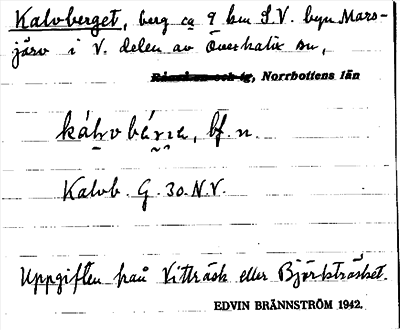 Kalvberget, berg ca 9 km S.V. byn Mars-
järv i V. delen av Överkalix sn,
Norrbottens län
kálvo bárra, bf. n.
Kalvb. G. 30. N.V.
Uppgiften från Vitträsk eller Björkträsket.
EDVIN BRÄNNSTRÖM 1942.